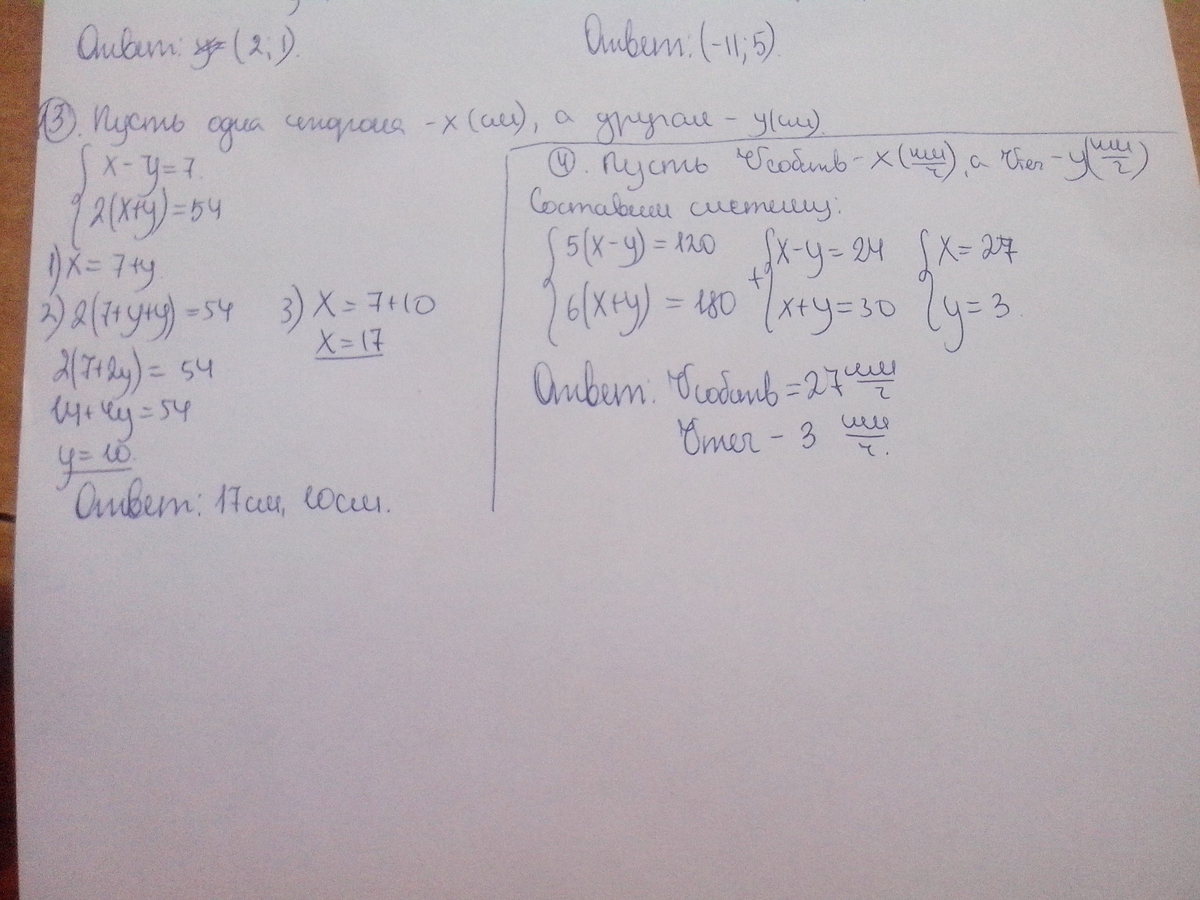 Ответ: (2; 1).
Ответ: (-11; 5)
③. Пусть одна сторона - x (см), а другая - y (см).
{ x - y = 7.
{ 2(x+y) = 54
1) x = 7+y
2) 2(7+y+y) = 54
2(7+2y) = 54
14+4y = 54
y = 10.
3) x = 7+10
x = 17
Ответ: 17см, 10см.
④. Пусть Vсобств - x (км/ч), а Vтеч - y (км/ч)
Составим систему:
{ 5(x-y) = 120
{ 6(x+y) = 180
+ { x-y = 24
{ x+y = 30
{ x = 27
{ y = 3.
Ответ: Vсобств = 27 км/ч
Vтеч - 3 км/ч.